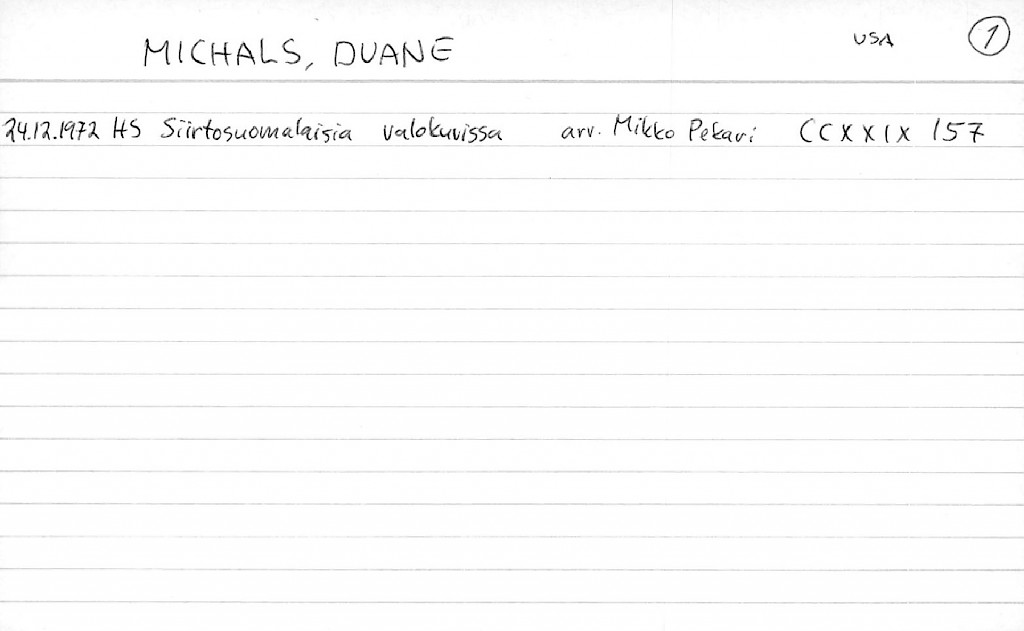 MICHALS, DUANE USA 1
24.12.1972 HS Siirtosuomalaisia valokuvissa arv. Mikko Pekari CCXXIX 157